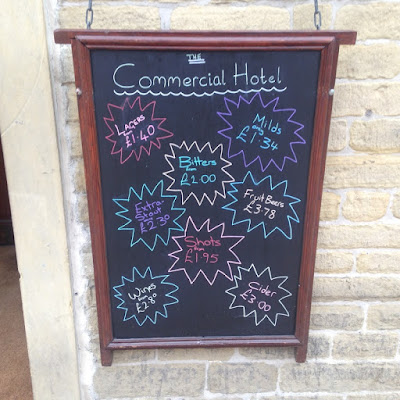 THE
Commercial Hotel
LAGERS
from
£1.40
Milds
only
£1.34
Bitters
from
£2.00
Extra-
Stout
£2.30
Fruit Beers
£3.78
Shots
from
£1.95
Wines
from
£2.80
Cider
£3.00